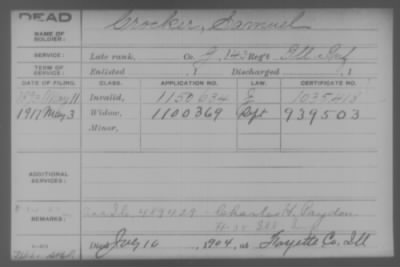 DEAD
NAME OF SOLDIER: Crocker, Samuel
SERVICE: Late rank, Co. G, 143 Reg't Ill Inf
TERM OF SERVICE: Enlisted , 1 Discharged , 1
DATE OF FILING. CLASS. APPLICATION NO. LAW. CERTIFICATE NO.
May 11 Invalid, 1150634 1035418
1917 May 3 Widow, 1100369 939503
Minor,
ADDITIONAL SERVICES:
REMARKS: 489429 Charles H.
Died July 16, 1904, at Fayette Co, Ill